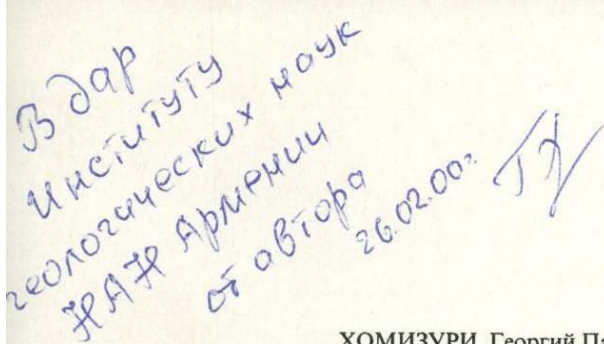 В дар
Институту
геологических наук
НАН Армении
от автора
26.02.00г.
ГХ
ХОМИЗУРИ Георгий Па